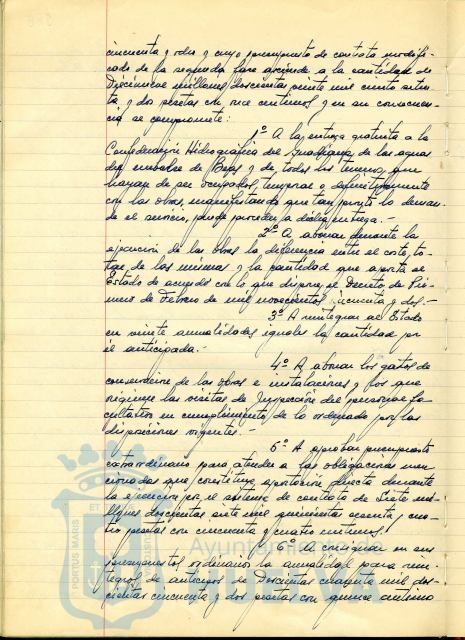 cincuenta y ocho y cuyo presupuesto de contrata modifi-
cado de la segunda fase asciende a la cantidad de
Diecinueve millones doscientas veinte mil ciento seten-
ta y dos pesetas con once centimos y en su consecuen-
cia se compromete:
1º A la entrega gratuita a la
Confederación Hidrográfica del Guadiana de las aguas
del embalse de y de todos los terrenos que
hayan de ser ocupados, temporal o definitivamente
con las obras, manifestando que tan pronto lo deman-
de el servicio, puede proceder a dicha entrega.-
2º A abonar durante la
ejecución de las obras la diferencia entre el coste to-
tal de las mismas y la cantidad que aporta el
Estado de acuerdo con lo que dispone el Decreto de Pri-
mero de Febrero de mil novecientos cincuenta y dos.-
3º A reintegrar al Estado
en veinte anualidades iguales la cantidad por
él anticipada.-
4º A abonar los gastos de
conservación de las obras e instalaciones y los que
originen las visitas de Inspección del personal fa-
cultativo en cumplimiento de lo ordenado por las
disposiciones vigentes.-
5º A aprobar presupuesto
extraordinario para atender a las obligaciones men-
cionadas que constituye aportación directa durante
la ejecución por el sistema de contrata de Siete mi-
llones doscientas siete mil quinientas ochenta y cua-
tro pesetas con cincuenta y cuatro centimos.
6º A consignar en sus
presupuestos ordinarios la anualidad para rein-
tegros de anticipos de Doscientas cuarenta mil dos-
cientas cincuenta y dos pesetas con quince centimos
PORTUS MARIS
ET
Ayuntamiento